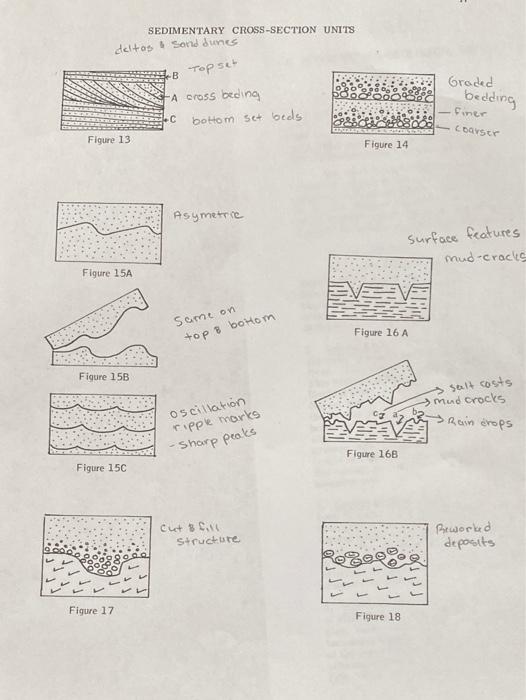 SEDIMENTARY CROSS-SECTION UNITS
deltas & sand dunes
Top set
B
A cross beding
C bottom set beds
Figure 13
Graded
bedding
- finer
- coarser
Figure 14
Asymetric
Figure 15A
Surface features
mud-cracks
Figure 16 A
Same on
top & bottom
Figure 15B
salt casts
mud cracks
Rain drops
c a b
Figure 16B
oscillation
ripple marks
- sharp peaks
Figure 15C
Cut & fill
structure
Figure 17
Reworked
deposits
Figure 18